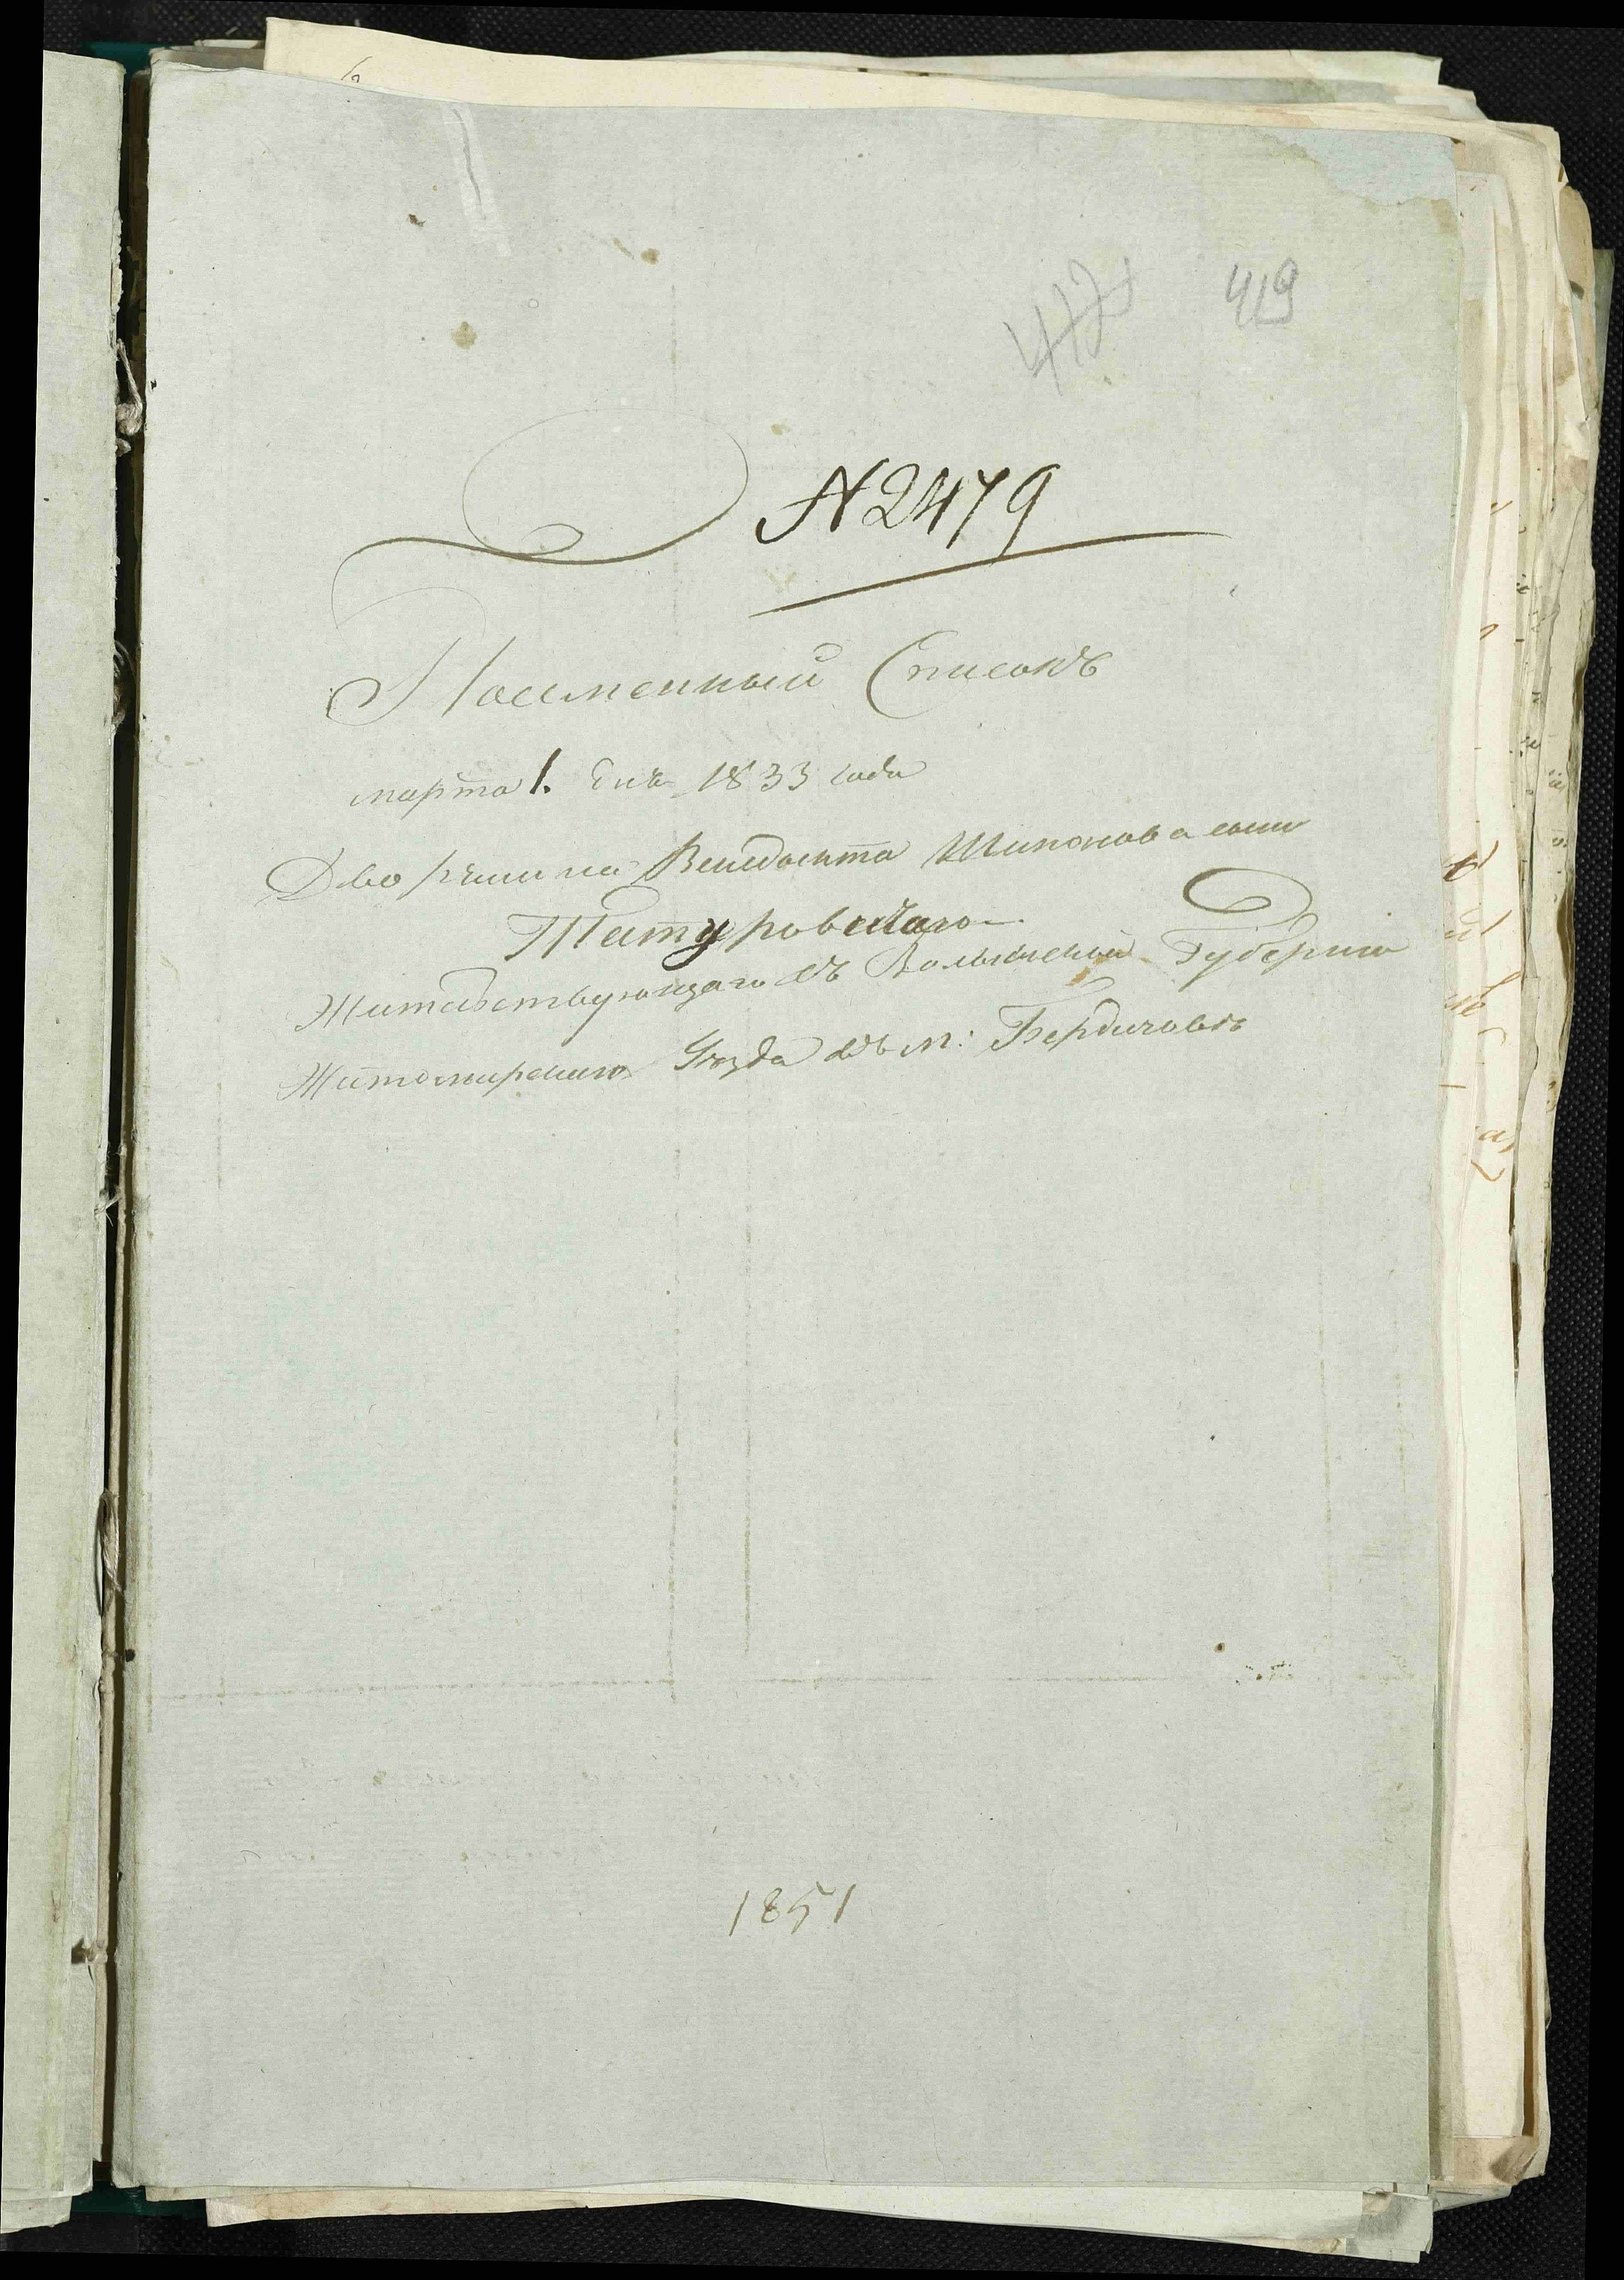 419
N 2479
Поименный Списокъ
марта 1. дня 1833 года
Дворянина Венедыкта Шимонова сына
Татуровскаго
Жительствующаго въ Волынской Губернии
Житомирскаго Уѣзда въ м: Бердичовѣ
1851